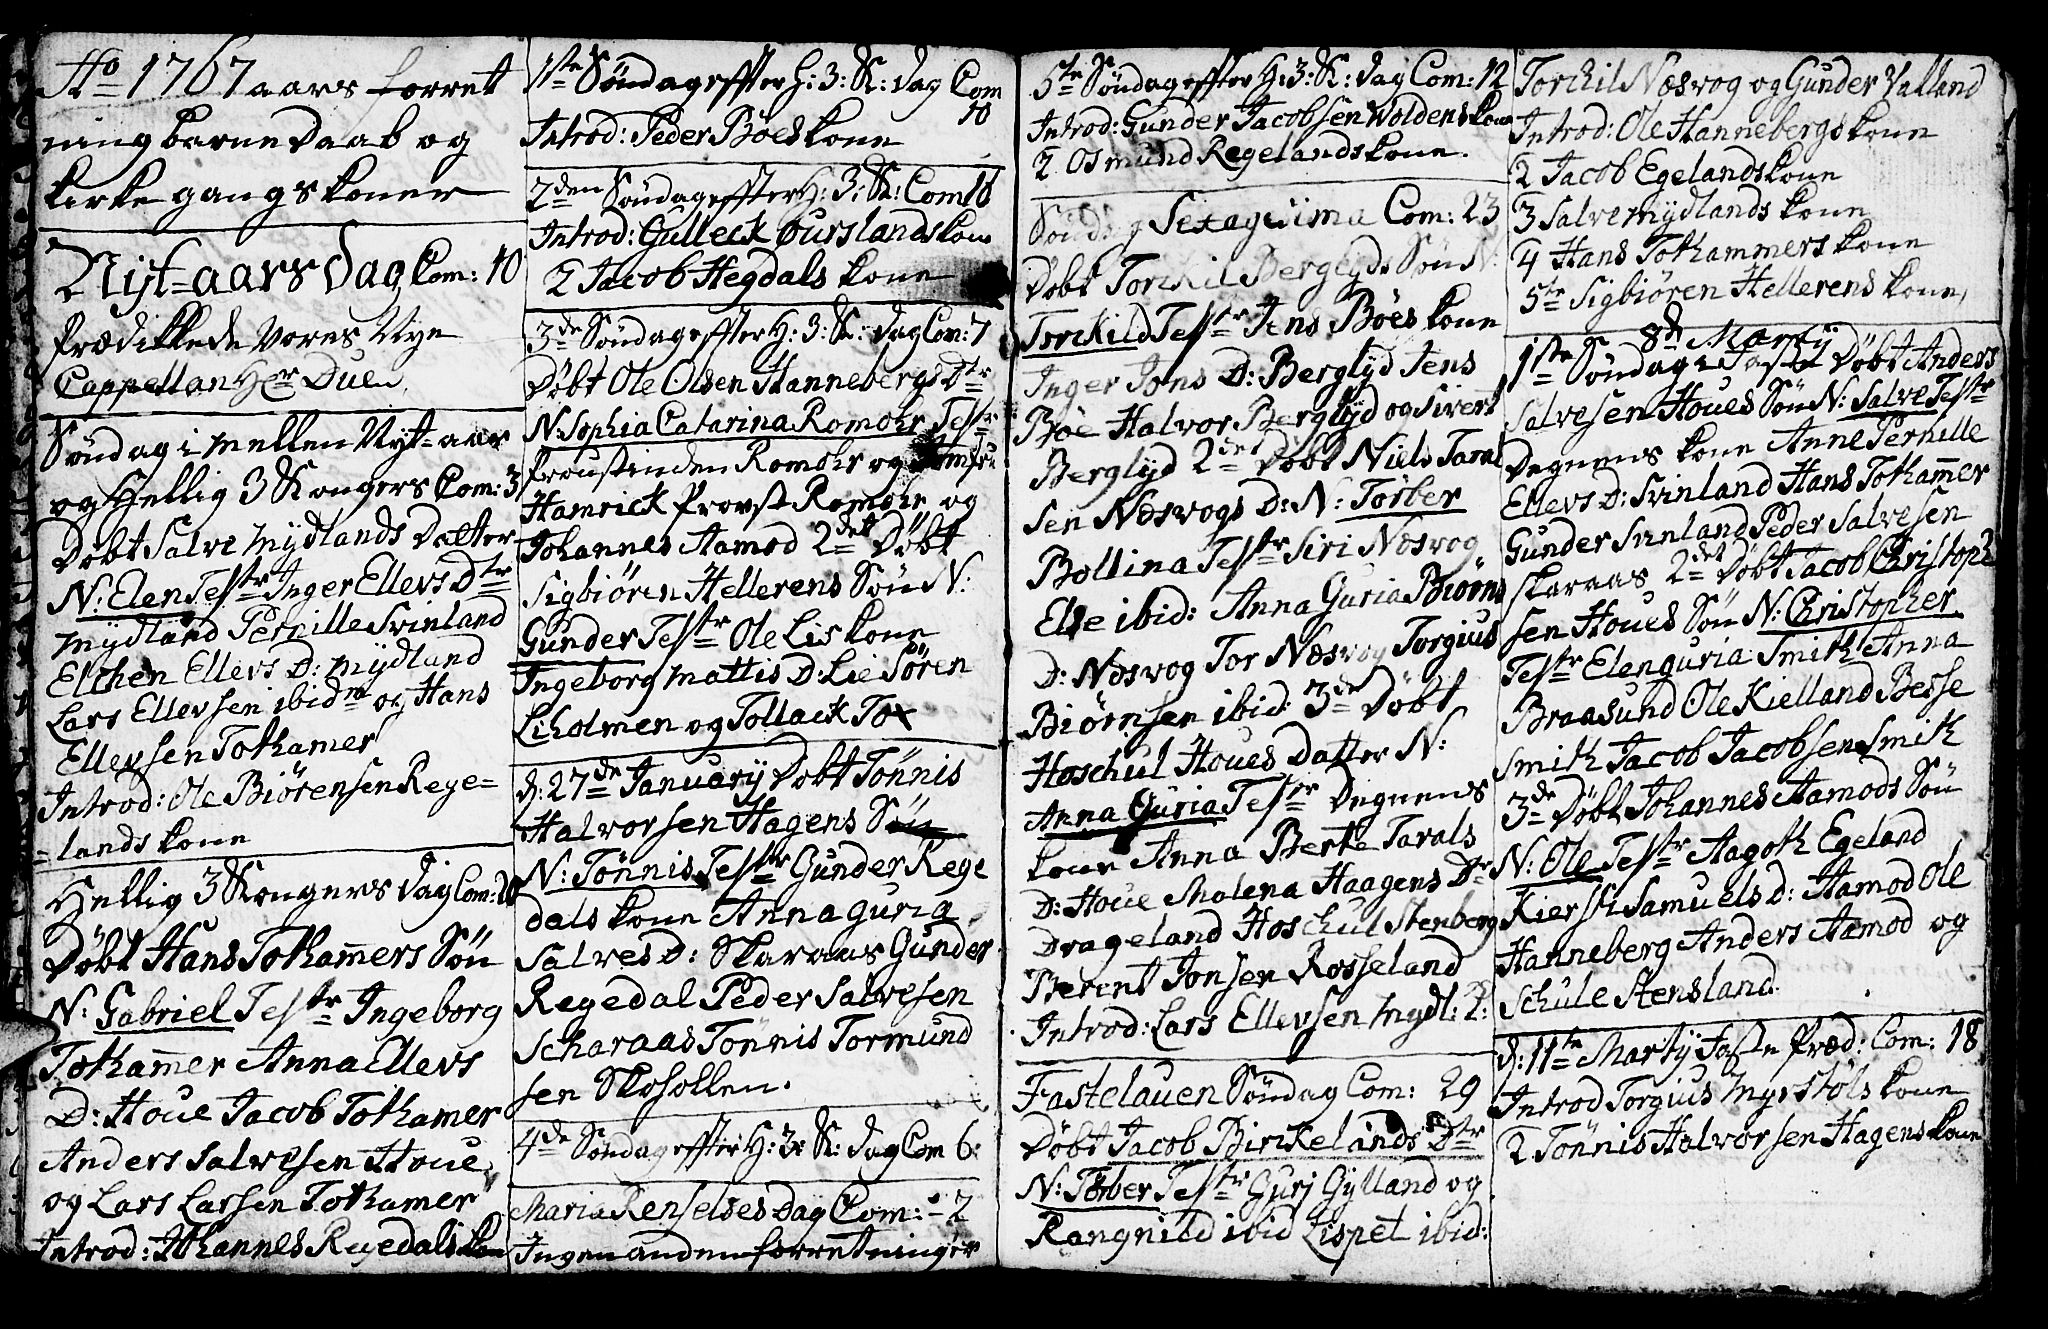 Ao 1767 aars forret
ning barne Daab og
kirke gangs koner
Nÿt=aars Dag Com: 10
Prædikkede Vores Nye
Cappellan Hr Due
Søndag i mellen Nyt=aar
og Hellig 3 Kongers Com: 3
Døbt Salve Mydlands Datter
N: Elen Testr Inger Ellevs Dtr
Mydland Pernille Svinland
Elchen Ellevs D: Mydland
Lars Ellevsen ibidm og Hans
Ellevsen Tothamer
Introd: Ole Biørensen Rege=
=lands kone
Hellig 3 Kongers Dag Com: 20
Døbt Hans Tothamers Søn
N: Gabriel Testr Ingeborg
Tothamer Anna Ellevs
D: Houe Jacob Tothamer
Anders Salvesen Houe
og Lars Larsen Tothamer
Introd: Johannes Regedals kone
1ste Søndag effter H: 3: K: Dag Com
10
Introd: Peder Bøes kone
2den Søndag effter H: 3: K: Com 16
Introd: Gulleck Ourslands kone
2 Jacob Hegdals kone
3de Søndag effter H: 3: K: Dag Com: 7
Døbt Ole Olsen Hannebergs Dtr
N: Sophia Catarina Romohr Testr
Proustinden Romohr og Jomfru
Hamrick Provst Romohr og
Johannes Aamod 2det Døbt
Sigbiören Hellerens Søn N:
Gunder Testr Ole Lis kone
Ingeborg Mattis D: Lie Sören
Liholmen og Tollack Tox
d: 27de January Døbt Tönnis
Halvorsen Hagens Søn
N: Tönnis Testr Gunder Rege
dals kone Anna Guria
Salves D: Skaraas Gunder
Regedal Peder Salvesen
Scharaas Tönnis Tormund
sen Skosollen.
4de Søndag effter H: 3: K: Dag Com 6:
Maria Renselses Dag Com: = 2
Ingen anden forretninger
5te Søndag effter H: 3: K: Dag Com: 12
Introd: Gunder Jacobsen Woldens kone
2 Osmund Regelands kone.
Søndag Sexagesima Com: 23
Døbt Torkil Berglyds Søn N:
Torckild Testr Jens Böes kone
Inger Jons D: Berglyd Jens
Bøe Halvor Berglyd og Sivert
Berglyd 2det Døbt Niels Taral
sen Næsvogs D: N: Törber
Bollina Testr Siri Næsvog
Else ibid: Anna Guria Biörns
D: Næsvog Tor Næsvog Torgius
Biörnsen ibid: 3de Døbt
Hoschul Houes Datter N:
Anna Guria Testr Degnens
kone Anna Berte Tarals
D: Houe Malena Haagens Dr
Drageland Hoschul Stenberg
Berent Jonsen Rosseland
Introd: Lars Ellevsen Mydl: 2:
Fastelauen Søndag Com: 29
Døbt Jacob Birckelands Dtr
N: Törber Testr Gurj Gylland og
Rangnild ibid Lispet ibid:
Torckil Næsvog og Gunder Valland
Introd: Ole Hannebergs kone
2 Jacob Egelands kone
3 Salve Mydlands kone
4 Hans Tothammers kone
5te Sigbiören Hellerens kone,
8d Martij
1ste Søndag i Faste Døbt Anders
Salvesen Houes Søn N: Salve Testr
Degnens kone Anne Pernille
Ellevs D: Svinland Hans Tothamer
Gunder Svinland Peder Salvesen
Skaraas 2det Døbt Jacob Christoph
sen Houes Søn N: Christopher
Testr Elen Guria Smith Anna
Braasund Ole Kielland Besse
Smith Jacob Jacobsen Smith
3de Døbt Johannes Aamods Søn
N: Ole Testr Aagoth Egeland
Kiersti Samuels D: Aamod Ole
Hanneberg Anders Aamod og
Schule Stensland
d: 11te Martij Faste Præd: Com: 18
Introd Torgius Myrstöls kone
2 Tönnis Halvorsen Hagens kone